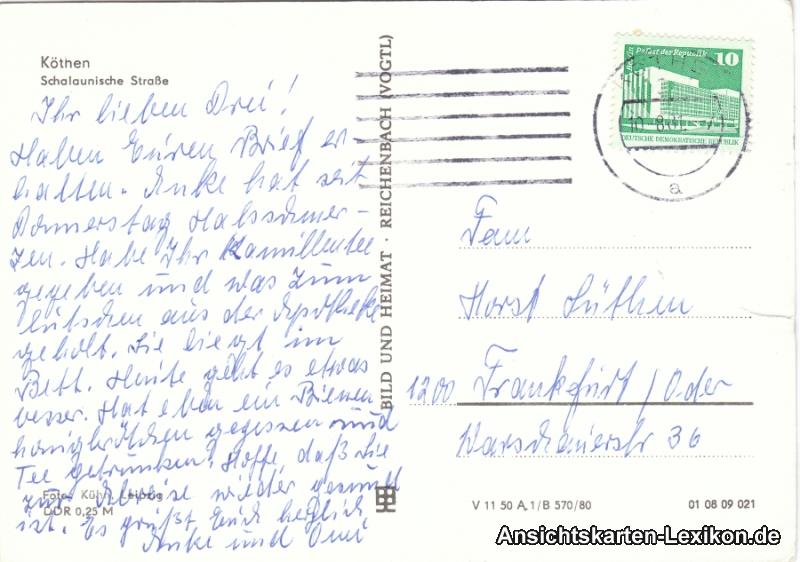 Köthen
Schalaunische Straße
Ihr lieben Drei!
Haben Euren Brief er-
halten. Anke hat seit
Donnerstag Halsschmer-
zen. Habe Ihr Kamillentee
gegeben und was zum
lutschen aus der Apotheke
geholt. Sie liegt im
Bett. Heute geht es etwas
besser. Hat eben ein Bienen
honigbrötchen gegessen und
Tee getrunken. Hoffe, daß sie
zur Abreise wieder gesund
ist. Es grüßt Euch herzlich
Anke und Omi
Foto: Kühn, Leipzig
DDR 0,25 M
BILD UND HEIMAT · REICHENBACH (VOGTL)
Palast der Republik
10
DEUTSCHE DEMOKRATISCHE REPUBLIK
a
Fam
Horst Lüthen
1200 Frankfurt / Oder
Warschauerstr 36
V 11 50 A 1/B 570/80
01 08 09 021
Ansichtskarten-Lexikon.de